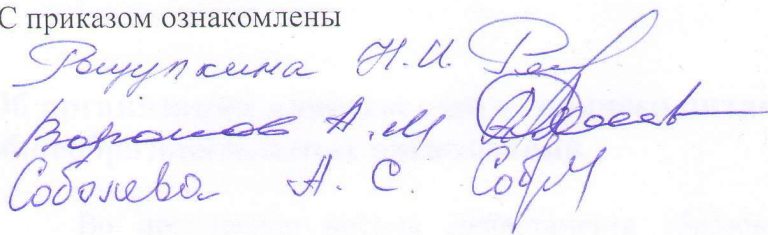 С приказом ознакомлены
Рощупкина Н.И.
Воронов А.М
Соболева А. С.